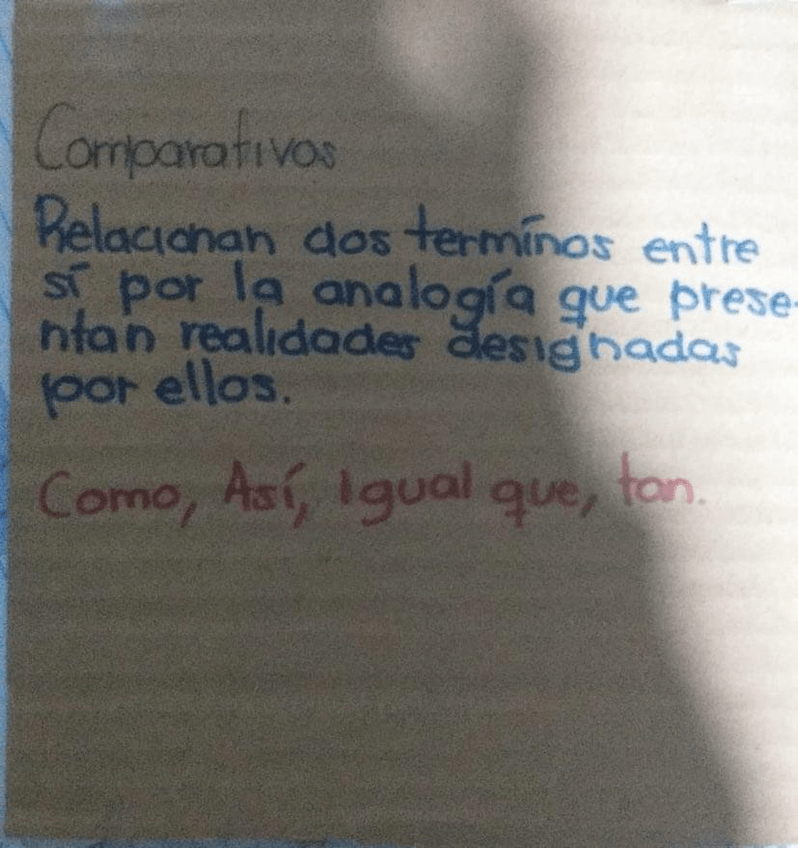 Comparativos
Relacionan dos termínos entre
sí por la analogía que prese-
ntan realidades designadas
por ellos.
Como, Así, Igual que, tan.